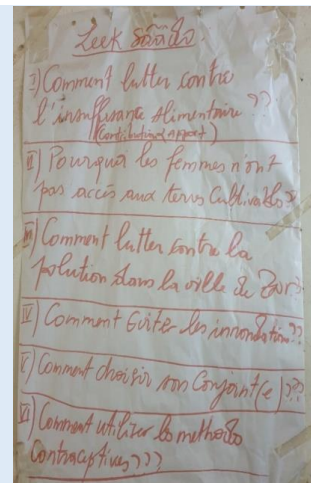 Leek
I) Comment lutter contre
l'insuffisance Alimentaire ??
II) Pourquoi les femmes n'ont
pas accès aux terres Cultivables
III) Comment lutter contre la
polution dans la ville de
IV) Comment Eviter les innondations??
V) Comment choisir son Conjoint(e)???
VI) Comment utiliser les methodes
Contraceptives???